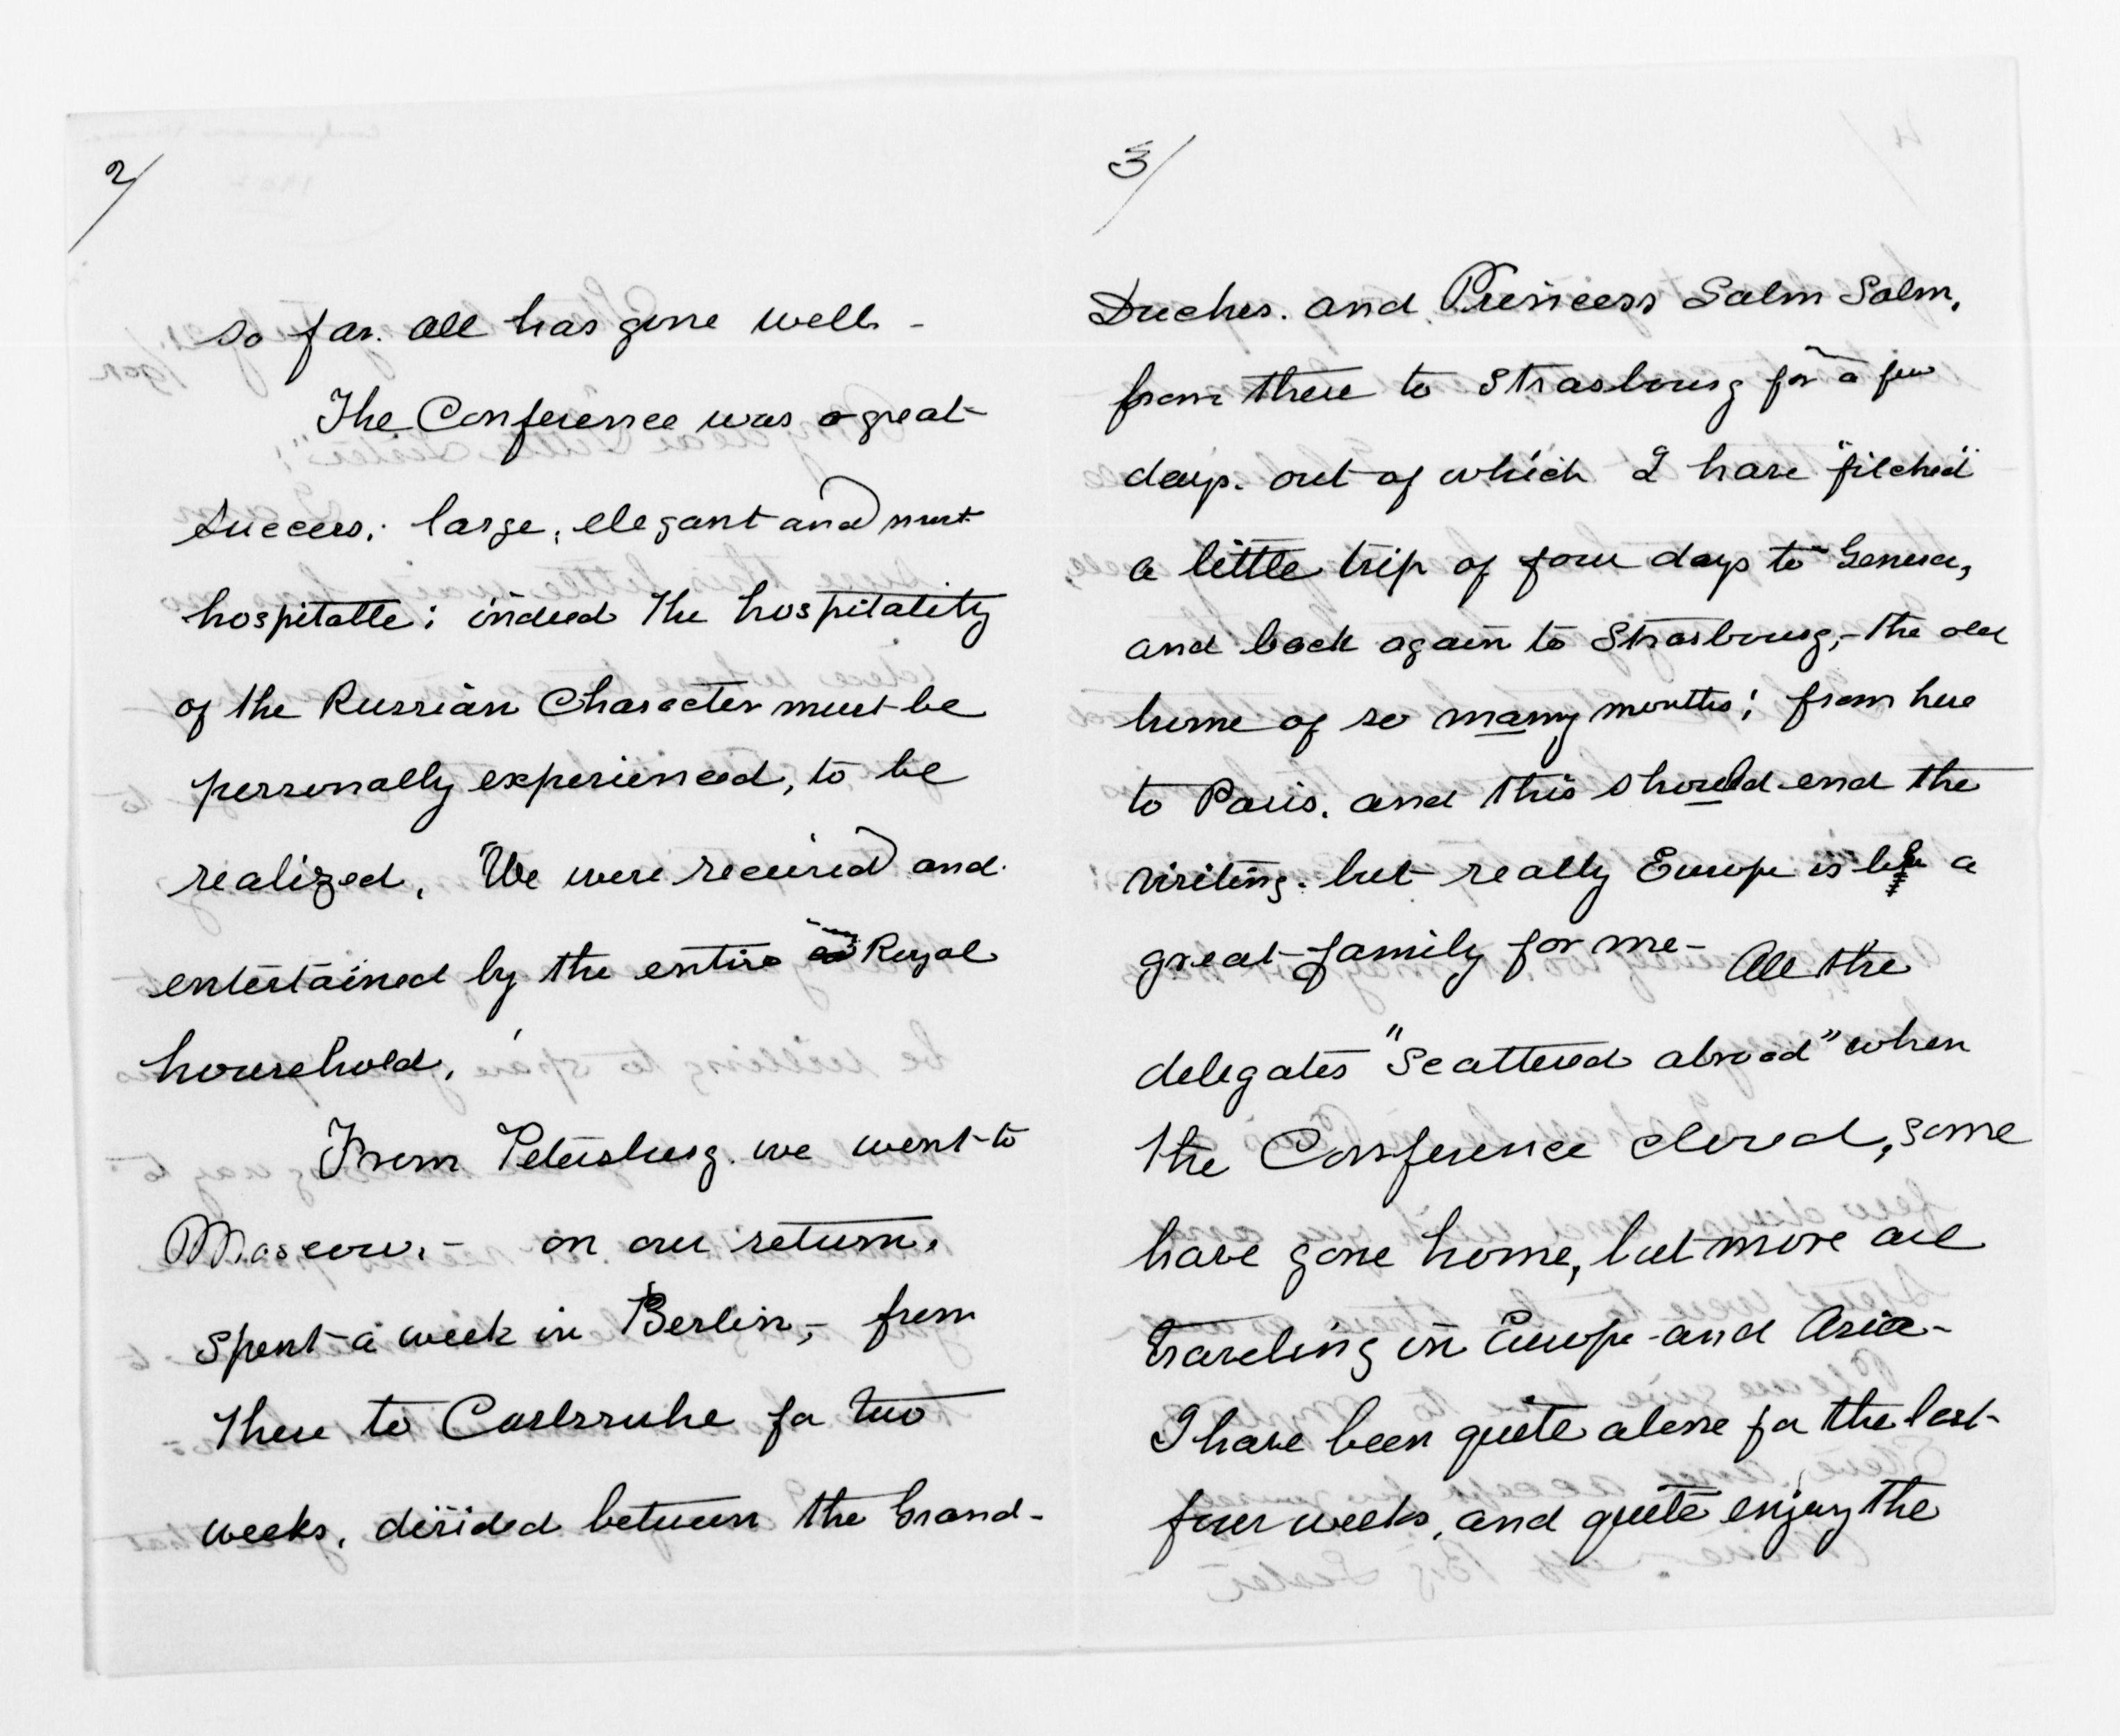 2/
so far. all has gone well. -
The Conference was a great
success; large, elegant and most
hospitable; indeed the hospitality
of the Russian Character must be
personally experienced, to be
realized. We were received and
entertained by the entire Royal
household.
From Petersburg. we went to
Moscow. - on our return.
spent a week in Berlin, - from
there to Carlsruhe for two
weeks, divided between the Grand-
3/
Duchess. and Princess Salm Salm.
from there to Strasbourg for a few
days. out of which I have "filched"
a little trip of four days to Geneva,
and back again to Strasbourg, - the old
home of so many months; from here
to Paris. and this should end the
visiting. but really Europe is like a
great family for me - All the
delegates "scattered abroad" when
the Conference closed, some
have gone home, but more are
traveling in Europe and Asia -
I have been quite alone for the last
four weeks, and quite enjoy the